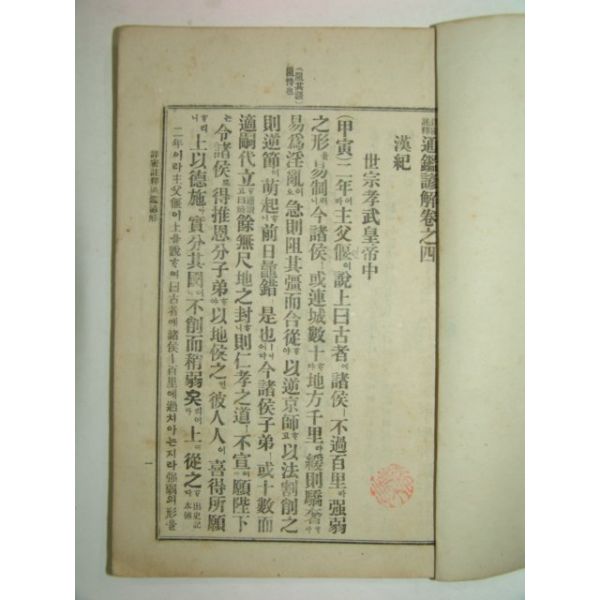 詳密註釋 通鑑諺解卷之四
漢紀
世宗孝武皇帝中
(甲寅)二年이라主父偃이說上曰古者에諸侯ㅣ不過百里라强弱
之形을易制러니今諸侯ㅣ或連城數十地方千里라緩則驕奢
易爲淫亂急則阻其彊而合從以逆京師以法割削之
則逆節이萌起前日鼂錯이是也ㅣ今諸侯子弟ㅣ或十數而
適嗣代立餘無尺地之封則仁孝之道ㅣ不宣願陛下
는令諸侯로得推恩分子弟以地侯之彼人人이喜得所願
上以德施實分其國不削而稍弱矣上이從之 出史記本傳
二年이라主父偃이上을說曰古者에諸侯ㅣ百里에過치아는지라强弱의形을
(阻其彊)阻恃也
詳密註釋通鑑諺解
一